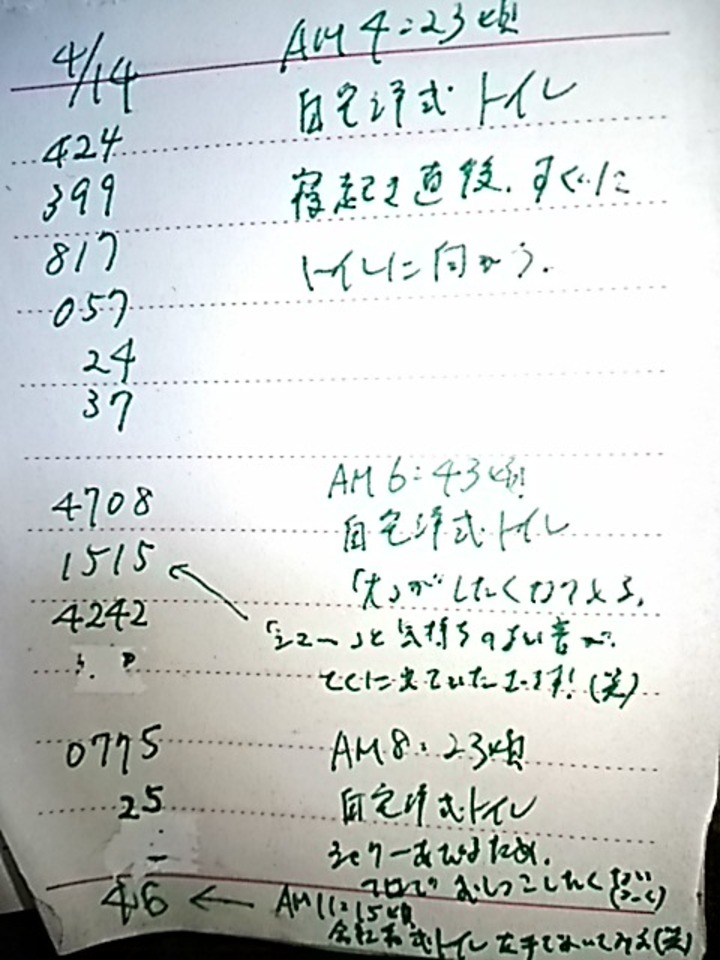 4/14 AM 4:23頃
424 自宅洋式トイレ
399 寝起き直後、すぐに
817 トイレに向かう.
057
24
37
4708 AM 6:43頃
1515 自宅洋式トイレ
4242 「大」がしたくなってくる.
「シュー」と気持ちのよい音が.
とくに出ていたようです!(笑)
0775 AM 8:23頃
25 自宅洋式トイレ
シャワーあびるため.
おしっこしたく
46 ← AM 11:15頃
会社和式トイレ 左手で (笑)